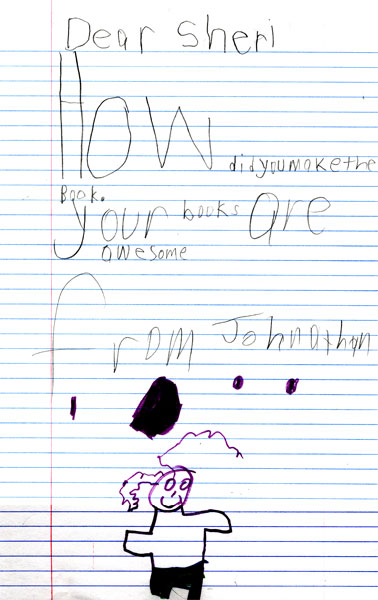 Dear Sheri
How didyoumakethe
Book.
your books are
awesome
from Johnathan